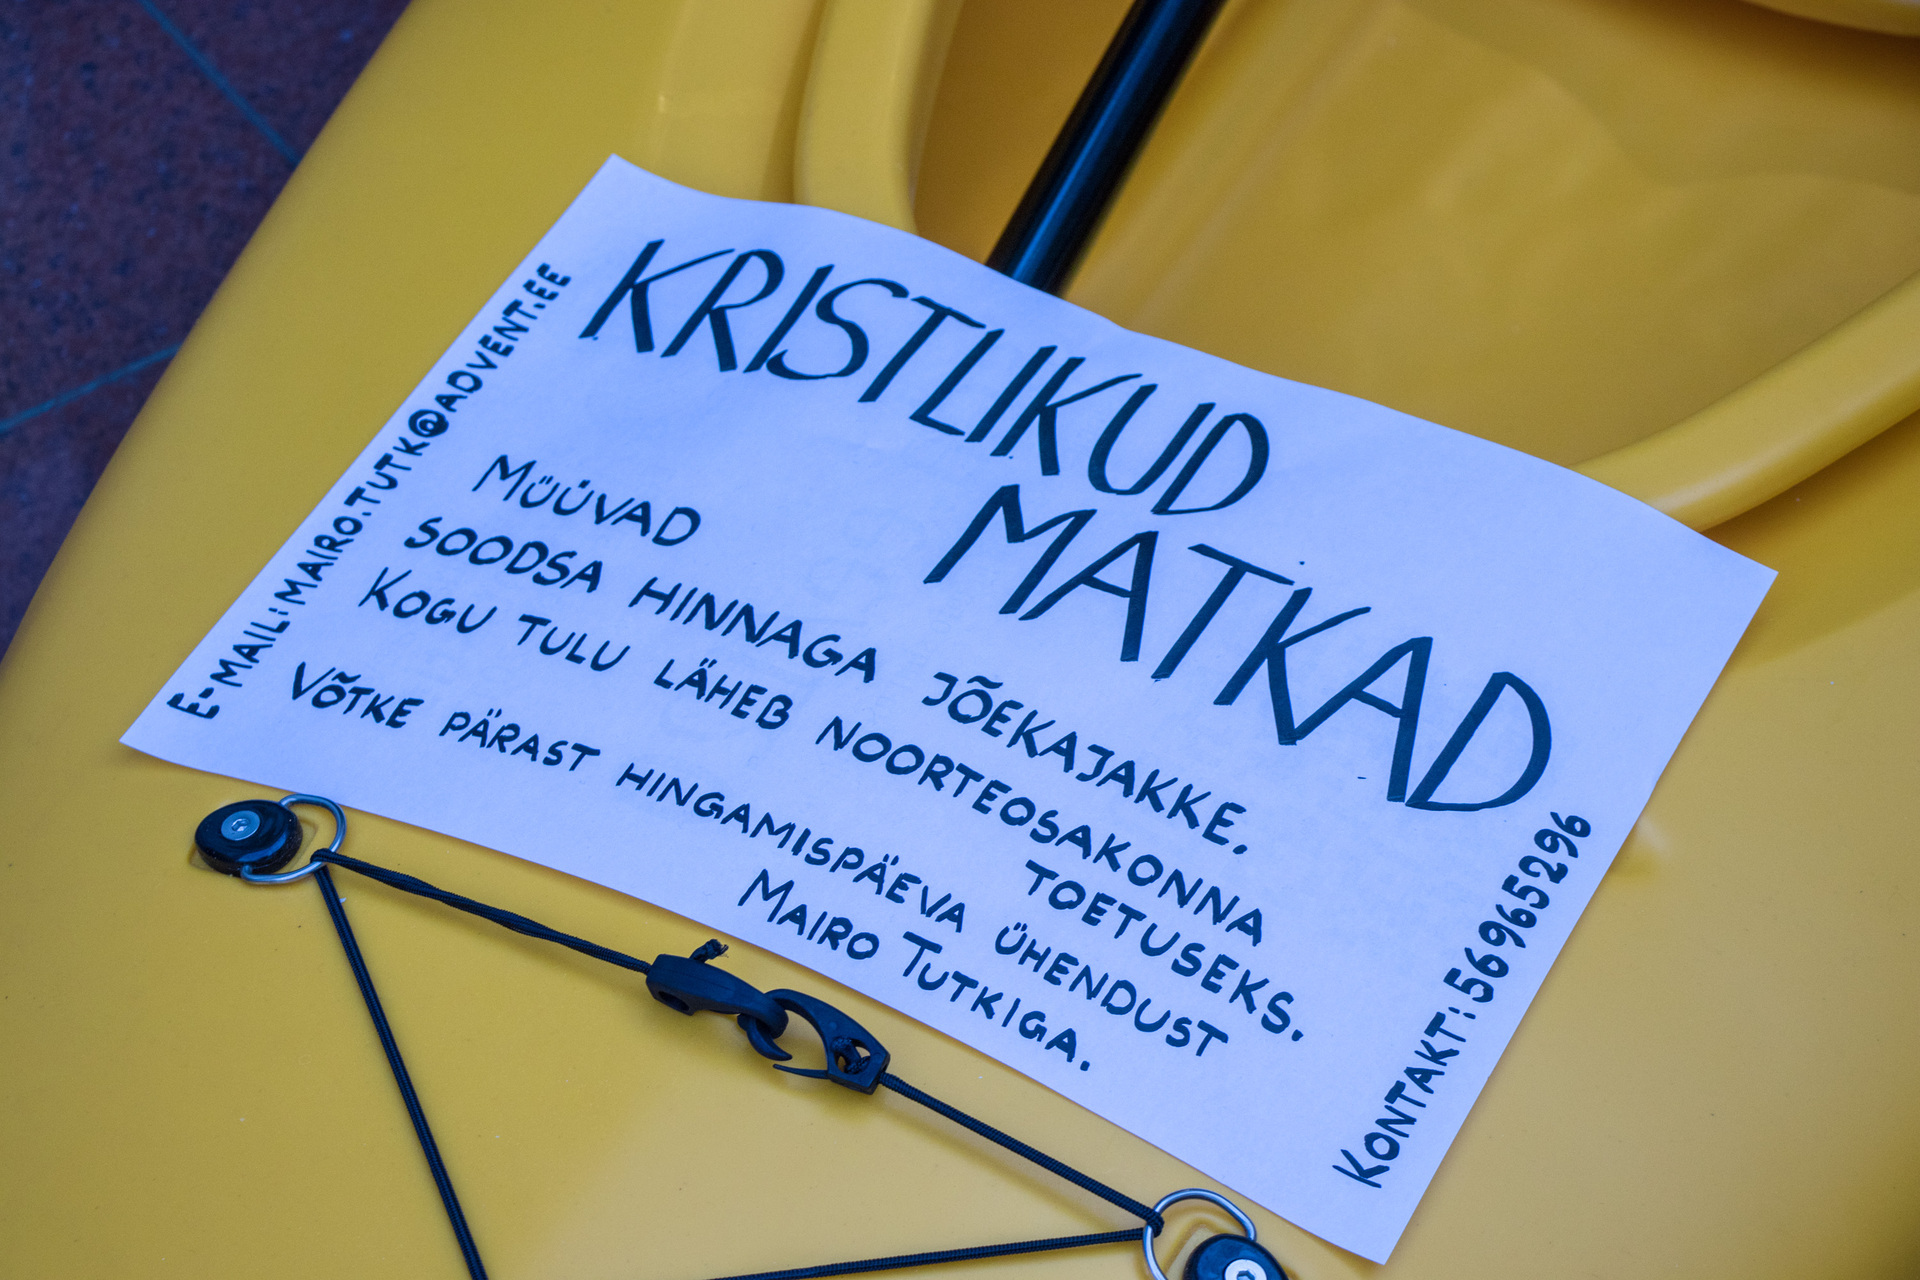 KRISTLIKUD
MATKAD
MÜÜVAD
SOODSA HINNAGA JÕEKAJAKKE.
KOGU TULU LÄHEB NOORTEOSAKONNA
TOETUSEKS.
VÕTKE PÄRAST HINGAMISPÄEVA ÜHENDUST
MAIRO TUTKIGA.
E-MAIL: MAIRO.TUTK@ADVENT.EE
KONTAKT: 56965296